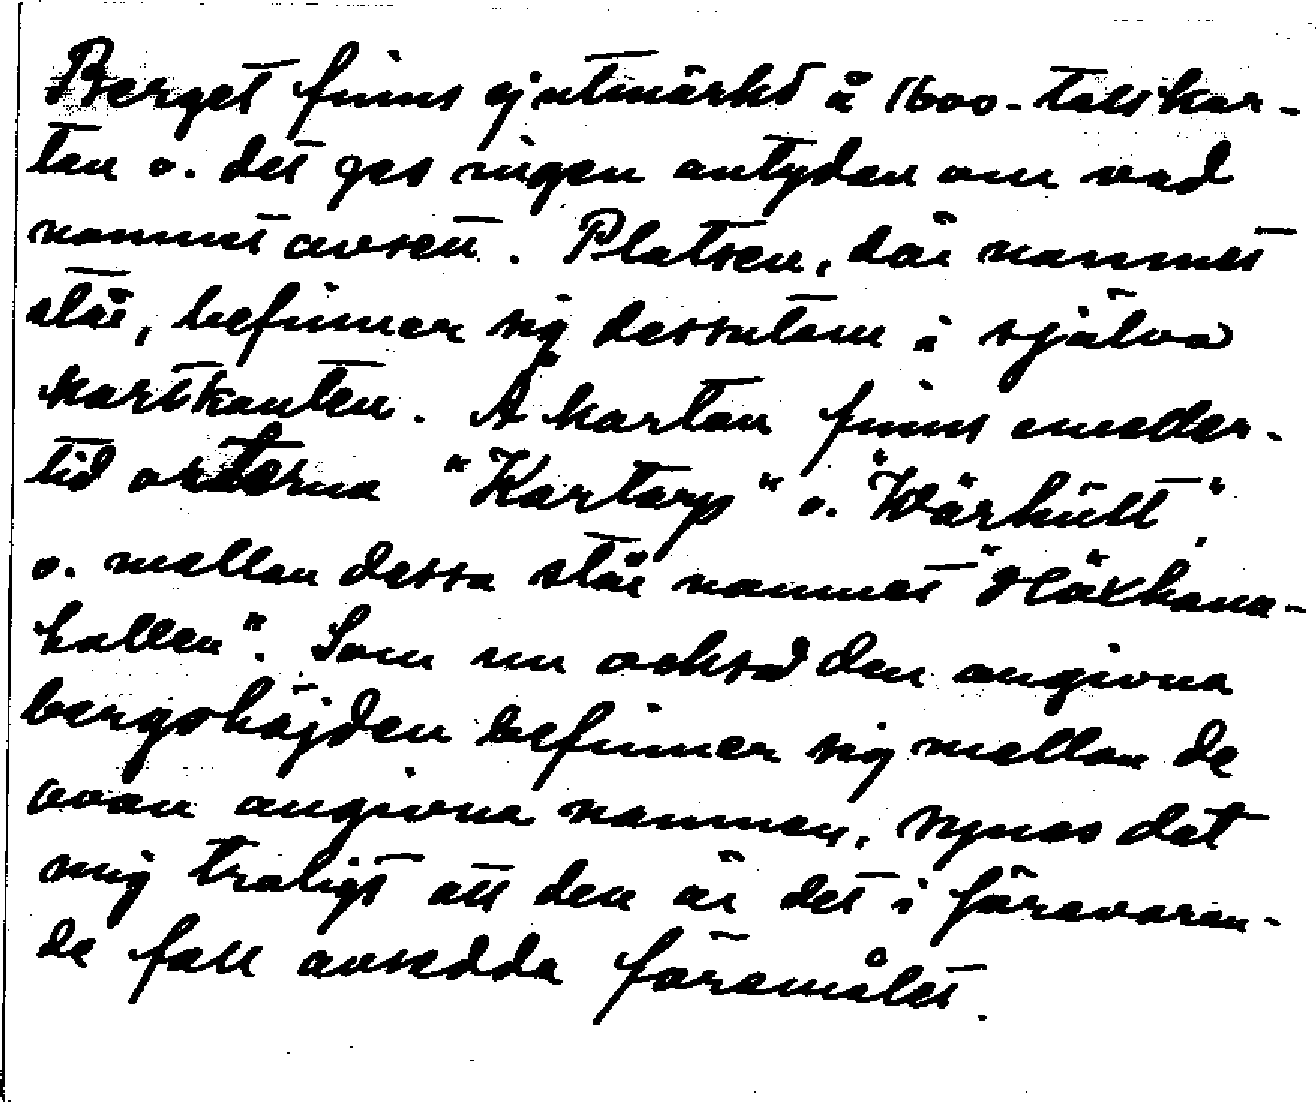 Berget finns ej utmärkt å 1600-talskar-
tan o. det ges ingen antydan om vad
namnet avsett. Platsen, där namnet
står, befinner sig dessutom i själva
kartkanten. Å kartan finns emeller-
tid orterna "Kartarp" o. "Wärhült",
o. mellan dessa står namnet "Häxhana-
hallen". Som nu också den angivna
bergshöjden befinner sig mellan de
ovan angivna namnen, synes det
mig troligt att den är det i förevaran-
de fall avsedda föremålet.